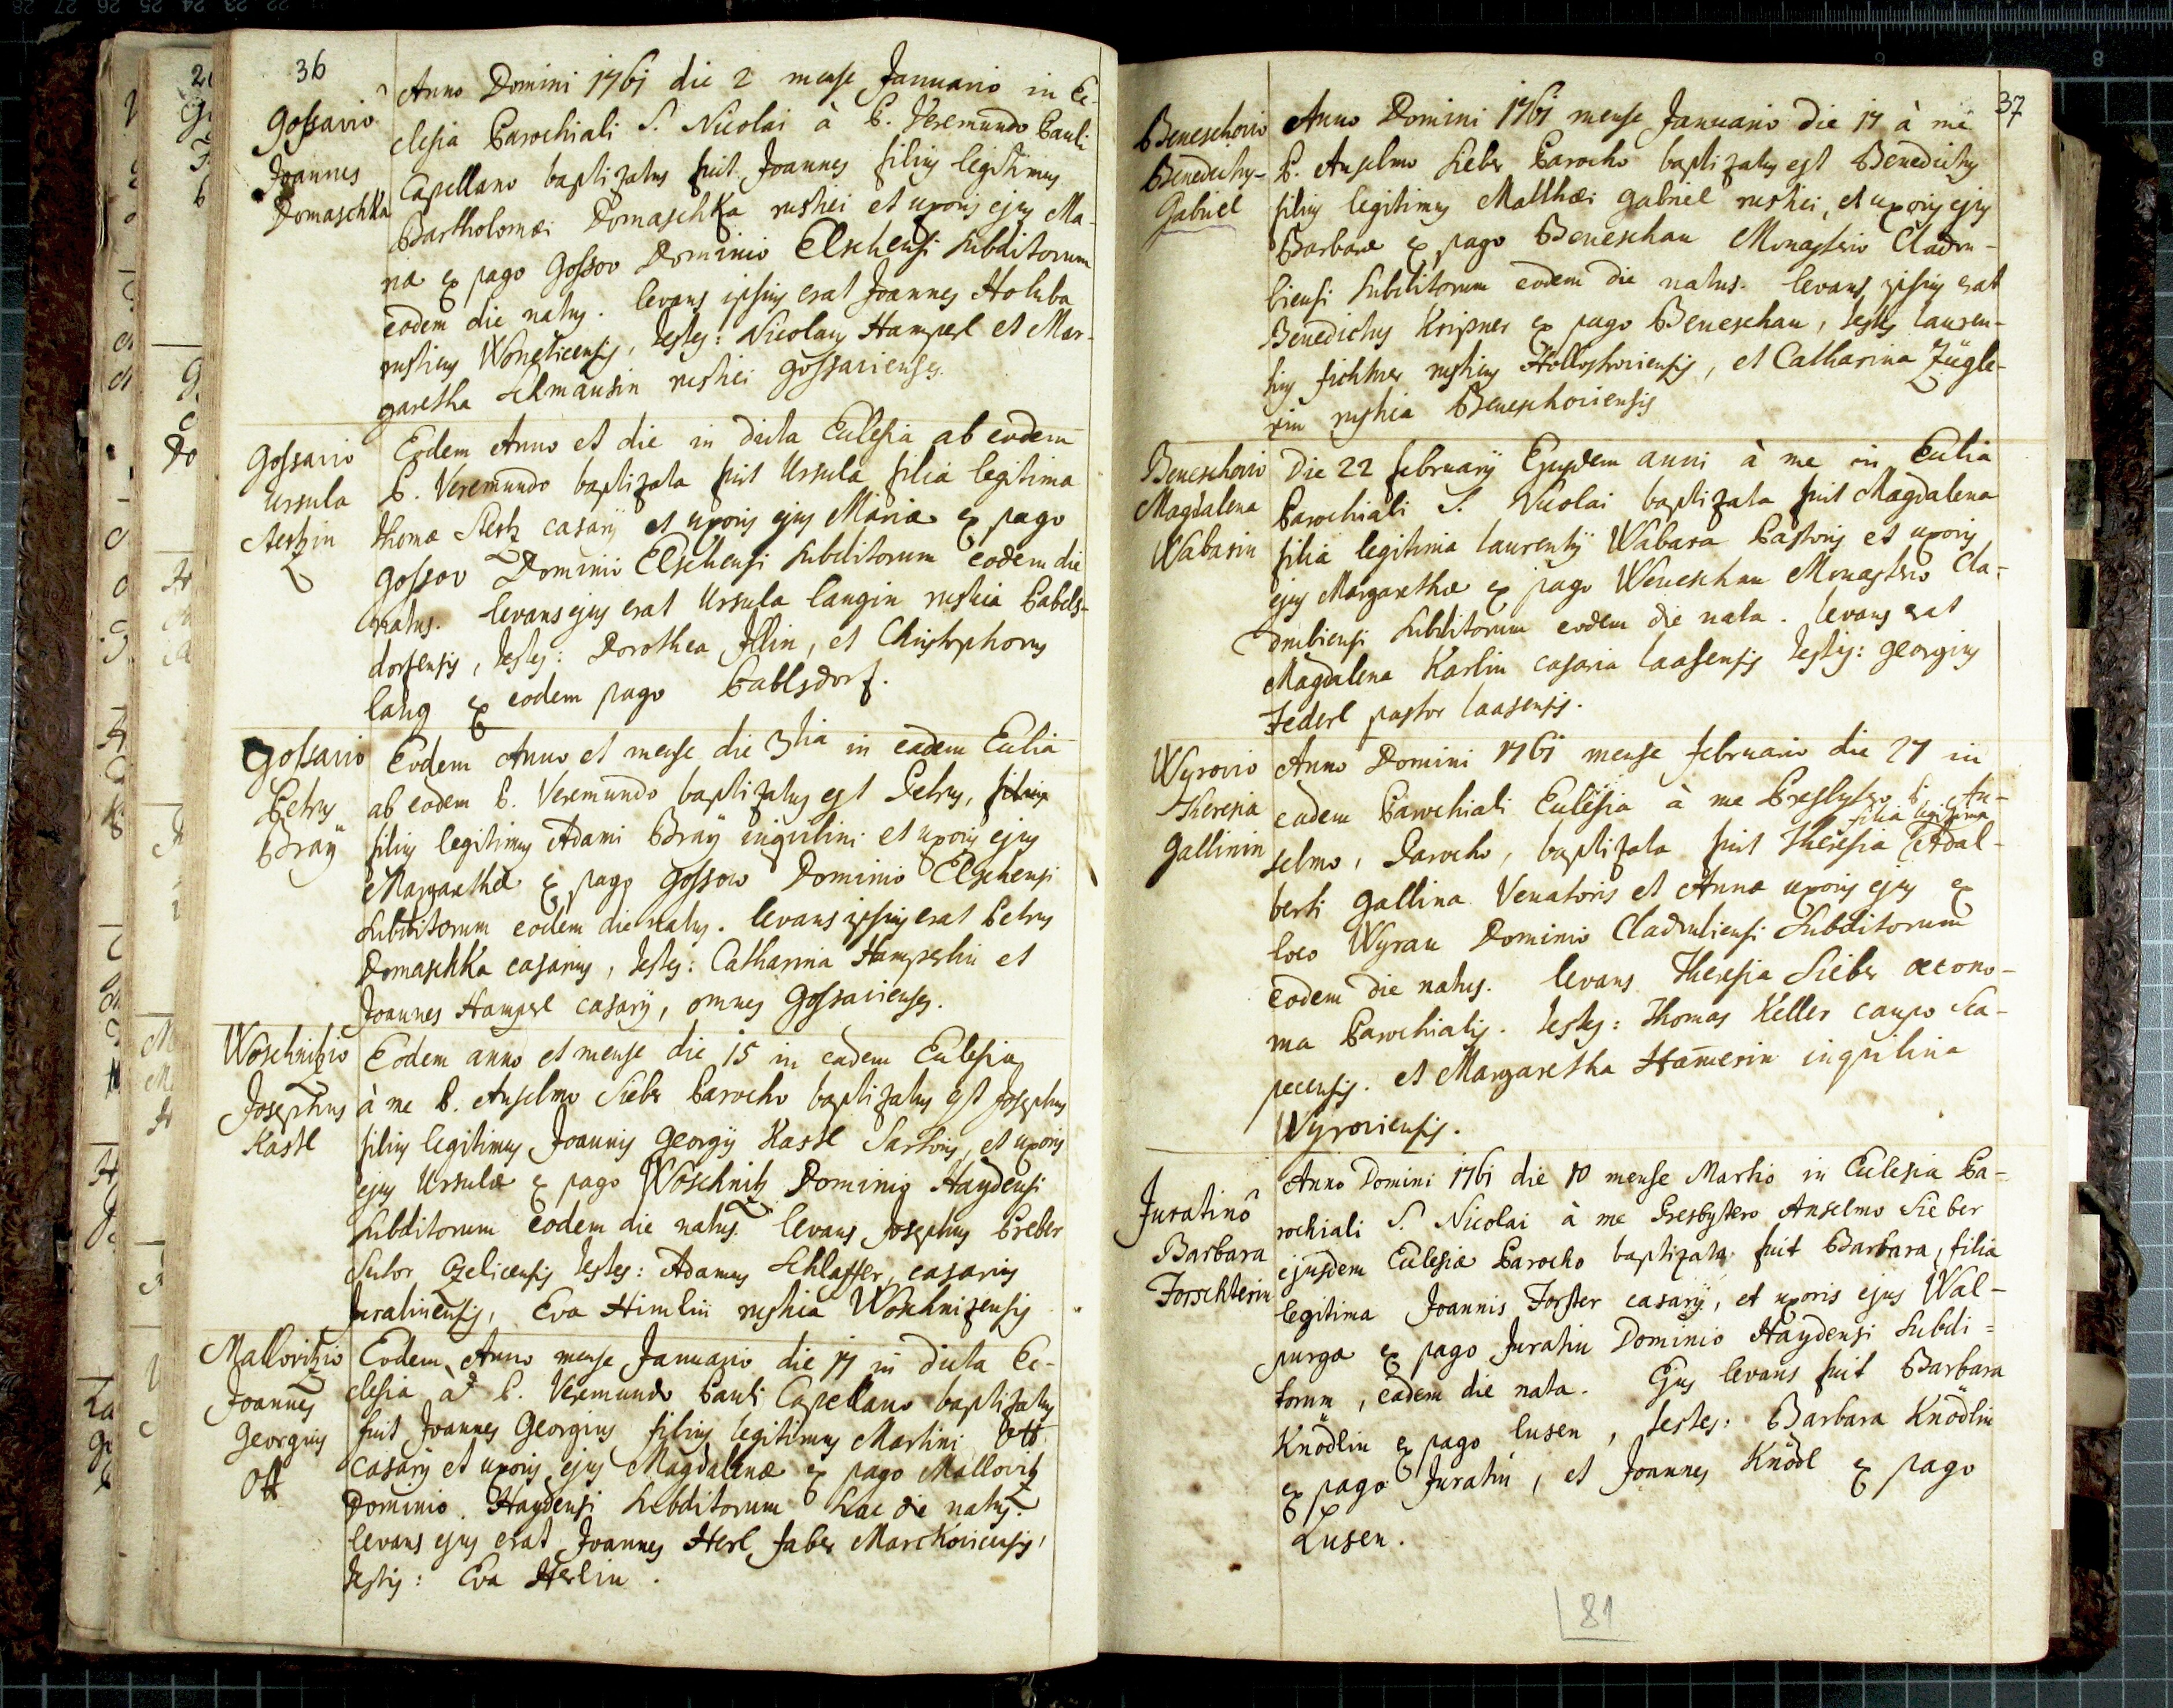 36
Gossavio
Joannes
Domaschka
Anno Domini 1761 die 2 mense Januario in Ec-
clesia Parochiali S. Nicolai à P. Veremundo Pauli
Capellano baptizatus fuit Joannes filius legitimus
Bartholomæi Domaschka rustici et uxoris ejus Ma-
riæ ex pago Gossov Dominio Elschensi subditorum
eodem die natus. levans ipsius erat Joannes Holuba
rusticus Woneticensis, Testes: Nicolaus Hamperl et Mar-
garetha Schmausin rustici Gossavienses.
Gossavio
Ursula
Stertzin
Eodem Anno et die in dicta Ecclesia ab eodem
P. Veremundo baptizata fuit Ursula filia legitima
Thomæ Stertz casarij et uxoris ejus Mariæ ex pago
Gossov Dominio Elschensi subditorum eodem die
natus. levans ejus erat Ursula Langin rustica Pabels-
dorfensis, Testes: Dorothea Illin, et Christophorus
Lang ex eodem pago Pablsdorf.
Gossavio
Petrus
Braÿ
Eodem Anno et mense die 3tia in eadem Ecclia
ab eodem P. Veremundo baptizatus est Petrus, filius
filius legitimus Adami Braÿ inquilini et uxoris ejus
Margarethæ ex pago Gossow Dominio Elschensi
subditorum eodem die natus. levans ipsius erat Petrus
Domaschka casarius, Testes: Catharina Hamperlin et
Joannes Hamperl casarij, omnes Gossavienses.
Woschnitzio
Josephus
Kastl
Eodem anno et mense die 15 in eadem Ecclesia
à me P. Anselmo Sieber Parocho baptizatus est Josephus
filius legitimus Joannis Georgij Kastl Sartoris, et uxoris
ejus Ursulæ ex pago Woschnitz Dominio Haydensi
subditorum eodem die natus. levans Josephus Preber
Sutor Czelicensis Testes: Adamus Schlaffer, casarius
Juratinensis, Eva Himlin rustica Woschnizensis
Mallovitzio
Joannes
Georgius
Ott
Eodem Anno mense Januario die 17 in dicta Ec-
clesia à P. Veremundo Pauli Capellano baptizatus
fuit Joannes Georgius filius legitimus Martini Ott
casarij et uxoris ejus Magdalenæ ex pago Mallovitz
Dominio Haydensi subditorum hac die natus.
levans ejus erat Joannes Herl faber Marckoviensis,
Testis: Eva Herlin.
37
Beneschovio
Benedictus
Gabriel
Anno Domini 1761 mense Januario die 17 à me
P. Anselmo Sieber Parocho baptizatus est Benedictus
filius legitimus Matthæi Gabriel rustici, et uxoris ejus
Barbaræ ex pago Beneschau Monasterio Cladru-
biensi subditorum eodem die natus. levans ipsius erat
Benedictus Kripner ex pago Beneschau, Testes Lauren-
tius Fichtner rusticus Hollostroviensis, et Catharina Zügle-
rin rustica Beneschoviensis
Beneschovio
Magdalena
Wabarin
Die 22 februarij Ejusdem anni à me in Ecclia
Parochiali S. Nicolai baptizata fuit Magdalena
filia legitima Laurentij Wabara Pastoris et uxoris
ejus Margarethæ ex pago Weneschau Monasterio Cla-
drubiensi subditorum eodem die nata. levans erat
Magdalena Karlin casaria Laasensis Testis: Georgius
Federl pastor Laasensis.
Wyrovio
Theresia
Gallinin
Anno Domini 1761 mense februario die 27 in
eadem Parochiali Ecclesia à me Presbytero P. An-
selmo, Parocho, baptizata fuit Theresia filia legitima Adal-
berti Gallina Venatoris et Annæ uxoris ejus ex
loco Wyrau Dominio Cladrubiensi subditorum
eodem die natus. levans Theresia Sieber œcono-
ma Parochialis. Testes: Thomas Keller caupo Sca-
pecensis. et Margaretha Ham̅erin inquilina
Wyroviensis.
Juratinô
Barbara
Forschterin
Anno Domini 1761 die 10 mense Martio in Ecclesia Pa-
rochiali S. Nicolai à me Presbytero Anselmo Sieber
ejusdem Ecclesiæ Parocho baptizata fuit Barbara, filia
legitima Joannis Forster casarij, et uxoris ejus Wal-
purgæ ex pago Juratin Dominio Haydensi subdi=
torum, eadem die nata. Ejus levans fuit Barbara
Knödlin ex pago Lusen, Testes: Barbara Knödlin
ex pago Juratin, et Joannes Knödl ex pago
Lusen.
81